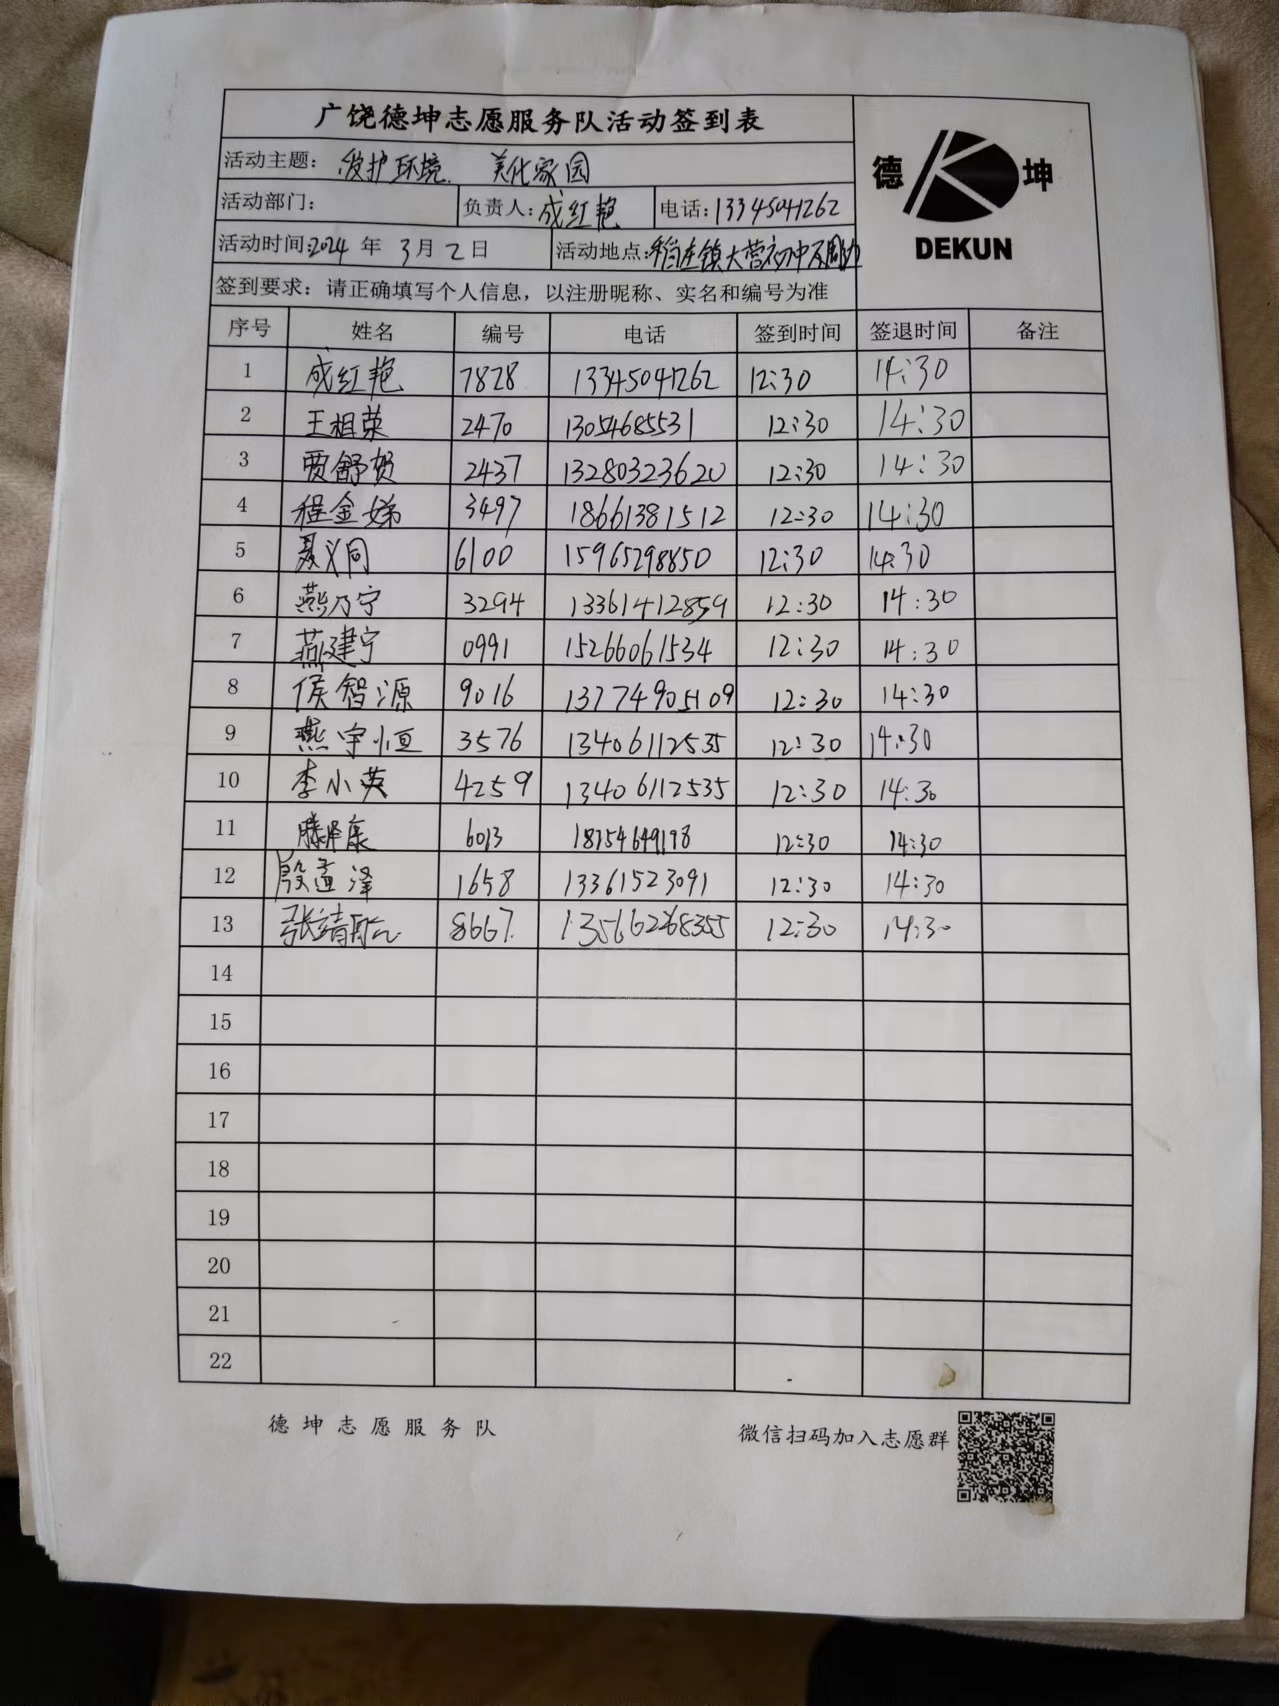 广饶德坤志愿服务队活动签到表
德 坤
DEKUN
活动主题：爱护环境 美化家园
活动部门： 负责人：成红艳 电话：13345041262
活动时间：2024 年 3 月 2 日 活动地点：稻庄镇大营初中及周边
签到要求：请正确填写个人信息，以注册昵称、实名和编号为准
序号 姓名 编号 电话 签到时间 签退时间 备注
1 成红艳 7828 13345041262 12:30 14:30
2 王相荣 2470 13054685531 12:30 14:30
3 贾舒贺 2437 13280323620 12:30 14:30
4 程金娣 3497 18661381512 12:30 14:30
5 聂义同 6100 15965298850 12:30 14:30
6 燕乃宁 3294 13361412859 12:30 14:30
7 燕建宁 0991 15266061534 12:30 14:30
8 侯智源 9016 13774905109 12:30 14:30
9 燕宇恒 3576 13406112535 12:30 14:30
10 李小英 4259 13406112535 12:30 14:30
11 滕泽康 6013 18754649198 12:30 14:30
12 殷孟泽 1658 13361523091 12:30 14:30
13 张靖 8667 13566268355 12:30 14:30
14
15
16
17
18
19
20
21
22
德坤志愿服务队 微信扫码加入志愿群